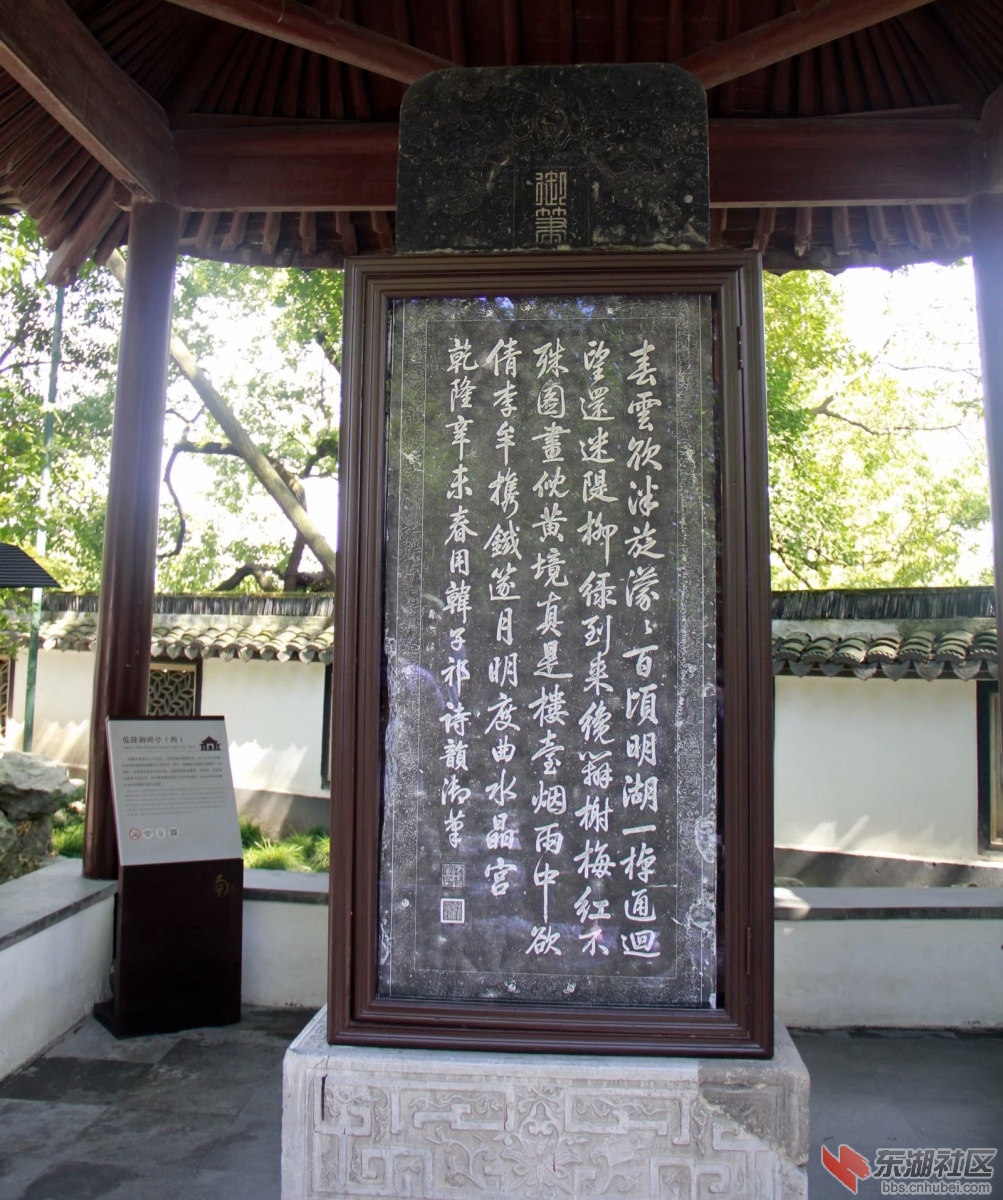 御筆
春雲欲泮旋濛〻百頃明湖一棹通迴
望還迷隄柳緑到来纔辨榭梅紅不
殊圖畫倪黄境真是樓臺烟雨中欲
倩李牟攜鐵篴月明度曲水晶宫
乾隆辛未春用韓子祁詩韻御筆
乾隆御碑亭（西）
东湖社区
bbs.cnhubei.com